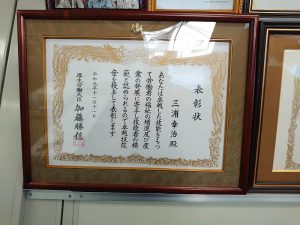 表彰状
三浦幸治殿
あなたは卓越した技能をもつ
て労働者の福祉の増進及び産
業の発展に寄与し技能者の模
範と認められるので卓越技能
章を授与して表彰します
令和元年十一月十一日
厚生労働大臣 加藤勝信